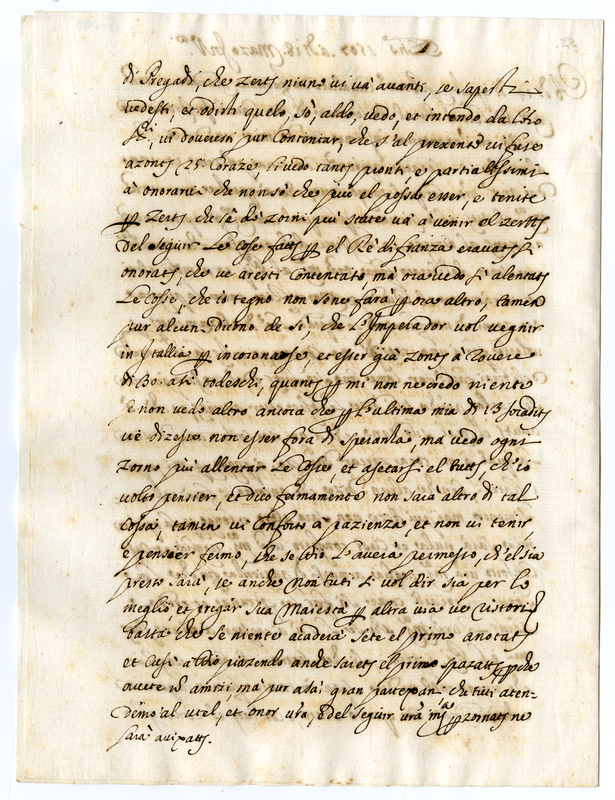 di Pregadi, che zerto niuno vi và avanti, se saperti
vedesti, et odirti quelo, sò, aldo, vedo, et intendo da
vi dovevesti pur Contentar, che s'al presente vi fuse
azonto 25. Coraze, li vedo tanto pronti e partialissimi
à onorarvi che non sò che più el possa esser, e tenite
zerto che se do zorni più state và à venir el
del seguir Le Cose fatto el Rè di franza eravate sì
onorato, che ve aresti Contentato, mà ora vedo sì alentato
Le Cosse, che io tegno non sene farà ora altro, tamen
pur alcun dicono de sì, che L'Imperador vol vegnir
in Itallia incoronarse, et esser già zonto à Rovere
di todeschi, quanto mi non ne credo niente
se non vedo altro ancora che L'ultima mia di 13
vè dizesse non esser fora di speranza, mà vedo ogni
zorno più allentar Le Cosse, et asetarsi el tutto, ch'io
volto pensier, et dico fermamente non sarà altro di tal
Cossa, tamen vi Conforto à pazienza, et non vi tenir
e pensier fermo, che se Idio L'averà permesso, ch'el sia
presto sarà, se anche non tuti si vol dir sia per lo
meglio, et pregar sua Maiestà altra via ve ristori
basta che se niente acaderà sete el primo anotato
et Cusì à Idio piazendo anche sarete el primo spazatto che
avete amizi mà pur asai gran che tuti aten-
demo al utel, et onor vro, del seguir zornate ne
sarà avixatto.